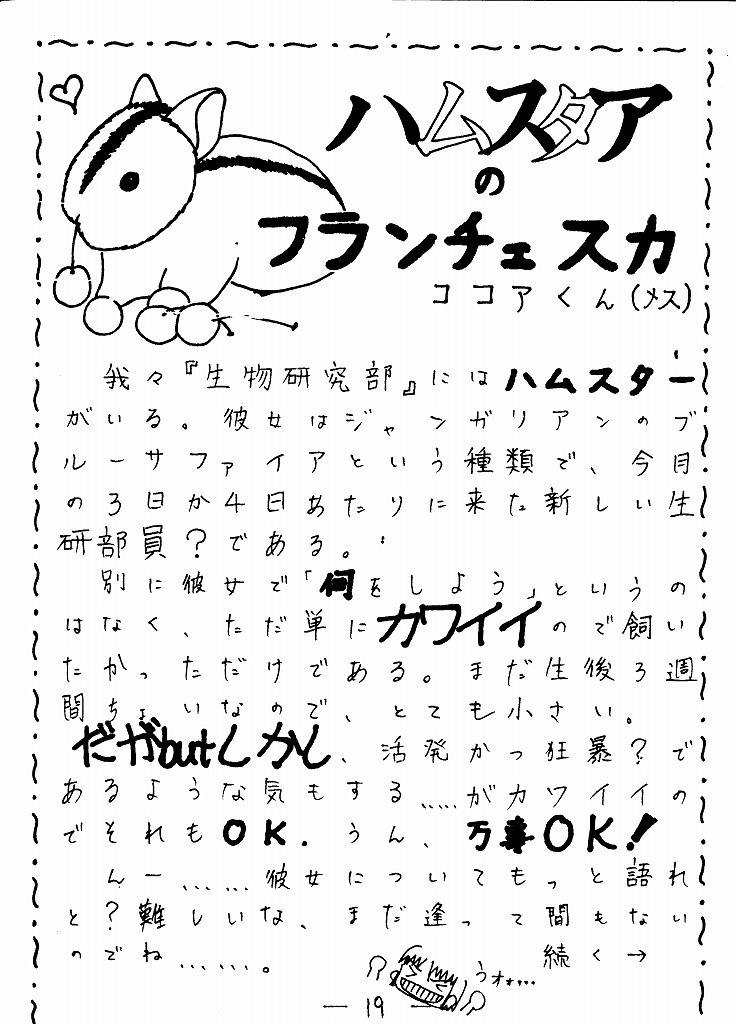 ハムスタア
の
フランチェスカ
ココアくん(メス)
我々『生物研究部』にはハムスター
がいる。彼女はジャンガリアンのブ
ルーサファイアという種類で、今月
の3日か4日あたりに来た新しい生
研部員?である。
別に彼女で「何をしよう」というの
はなく、ただ単にカワイイので飼い
たかっただけである。まだ生後3週
間ちょいなので、とても小さい。
だがbutしかし、活発かつ狂暴?で
あるような気もする……がカワイイの
でそれもOK.うん、万事OK!
んー……彼女についてもっと語れ
と?難しいな、まだ逢って間もない
のでね……。
続く→
うオォ…
― 19 ―